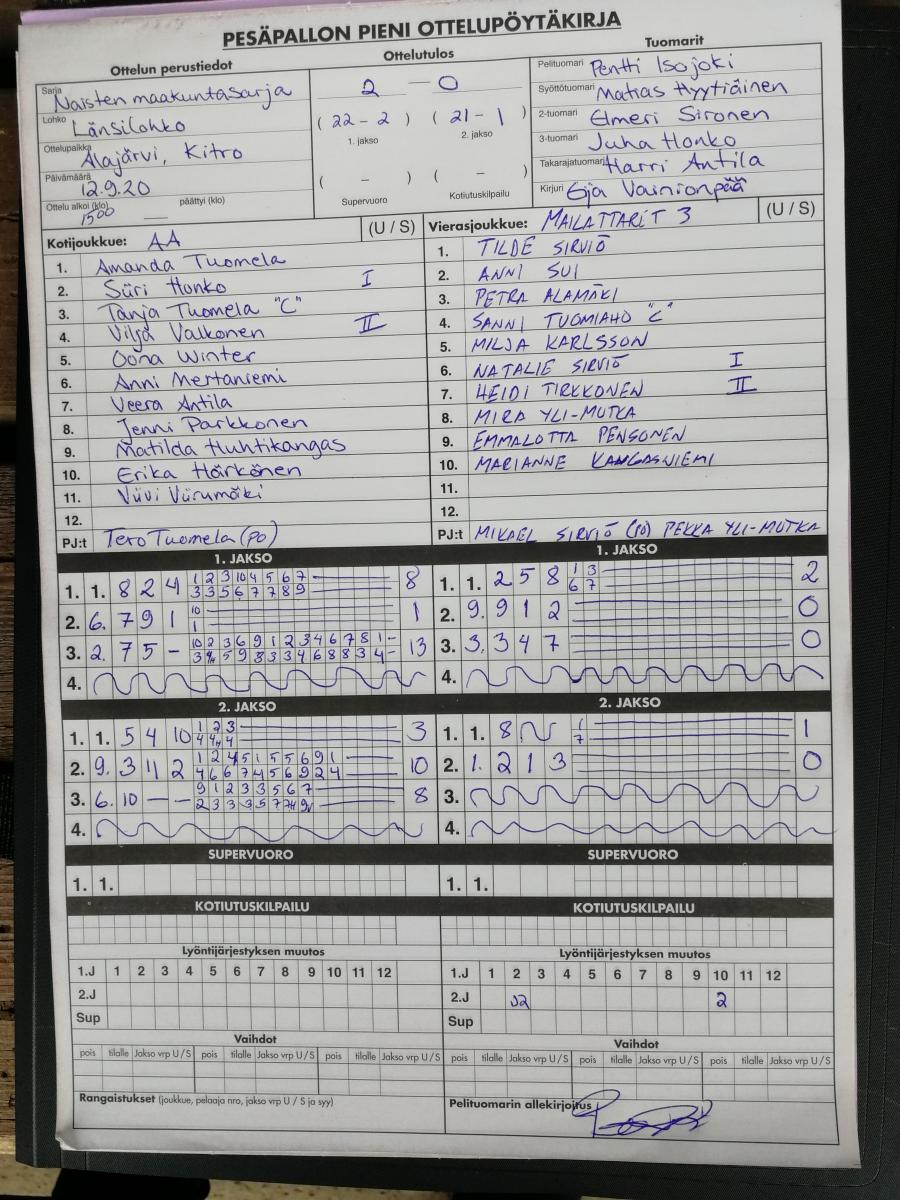 PESÄPALLON PIENI OTTELUPÖYTÄKIRJA
Ottelun perustiedot
Sarja Naisten maakuntasarja
Lohko Länsilohko
Ottelupaikka Alajärvi, Kitro
Päivämäärä 12.9.20
Ottelu alkoi (klo) 1500 päättyi (klo)
Ottelutulos
2 – 0
( 22 – 2 ) ( 21 – 1 )
1. jakso 2. jakso
( – ) ( – )
Supervuoro Kotiutuskilpailu
Tuomarit
Pelituomari Pentti Isojoki
Syöttötuomari Matias Hyytiäinen
2-tuomari Elmeri Sironen
3-tuomari Juha Honko
Takarajatuomari Harri Antila
Kirjuri Eija Vainionpää
Kotijoukkue: AA (U / S)
1. Amanda Tuomela
2. Siiri Honko I
3. Tanja Tuomela "C"
4. Vilja Valkonen II
5. Oona Winter
6. Anni Mertaniemi
7. Veera Antila
8. Jenni Parkkonen
9. Matilda Huhtikangas
10. Erika Härkönen
11. Viivi Viirumäki
12.
PJ:t Tero Tuomela (PO)
Vierasjoukkue: MAILATTARET 3 (U / S)
1. TILDE SIRVIÖ
2. ANNI SUI
3. PETRA ALAMÄKI
4. SANNI TUOMIAHO "C"
5. MILJA KARLSSON
6. NATALIE SIRVIÖ I
7. HEIDI TIRKKONEN II
8. MIRA YLI-MUTKA
9. EMMALOTTA PENSONEN
10. MARIANNE KANGASNIEMI
11.
12.
PJ:t MIKAEL SIRVIÖ (PO) PEKKA YLI-MUTKA
1. JAKSO
1. 1. 8 2 4 1 2 3 10 4 5 6 7 8
3 3 5 6 7 7 8 9
2. 6. 7 9 1 10 1
1
3. 2. 7 5 – 10 2 3 6 9 1 2 3 4 6 7 8 1 – 13
5 9 8 3 3 4 6 8 8 3 4 –
4.
1. JAKSO
1. 1. 2 5 8 1 3 2
6 7
2. 9. 9 1 2 0
3. 3. 3 4 7 0
4.
2. JAKSO
1. 1. 5 4 10 1 2 3 3
4 4 4
2. 9. 3 11 2 1 2 4 5 1 5 5 6 9 1 10
4 6 6 7 4 5 6 9 2 4
3. 6. 10 – – 9 1 2 3 3 5 6 7 8
2 3 3 3 5 7
4.
2. JAKSO
1. 1. 8 1 1
7
2. 1. 2 1 3 0
3.
4.
SUPERVUORO
1. 1.
SUPERVUORO
1. 1.
KOTIUTUSKILPAILU
KOTIUTUSKILPAILU
Lyöntijärjestyksen muutos
1.J 1 2 3 4 5 6 7 8 9 10 11 12
2.J
Sup
Lyöntijärjestyksen muutos
1.J 1 2 3 4 5 6 7 8 9 10 11 12
2.J 2
Sup
Vaihdot
pois tilalle Jakso vrp U / S pois tilalle Jakso vrp U / S pois tilalle Jakso vrp U / S
Vaihdot
pois tilalle Jakso vrp U / S pois tilalle Jakso vrp U / S pois tilalle Jakso vrp U / S
Rangaistukset (joukkue, pelaaja nro, jakso vrp U / S ja syy)
Pelituomarin allekirjoitus